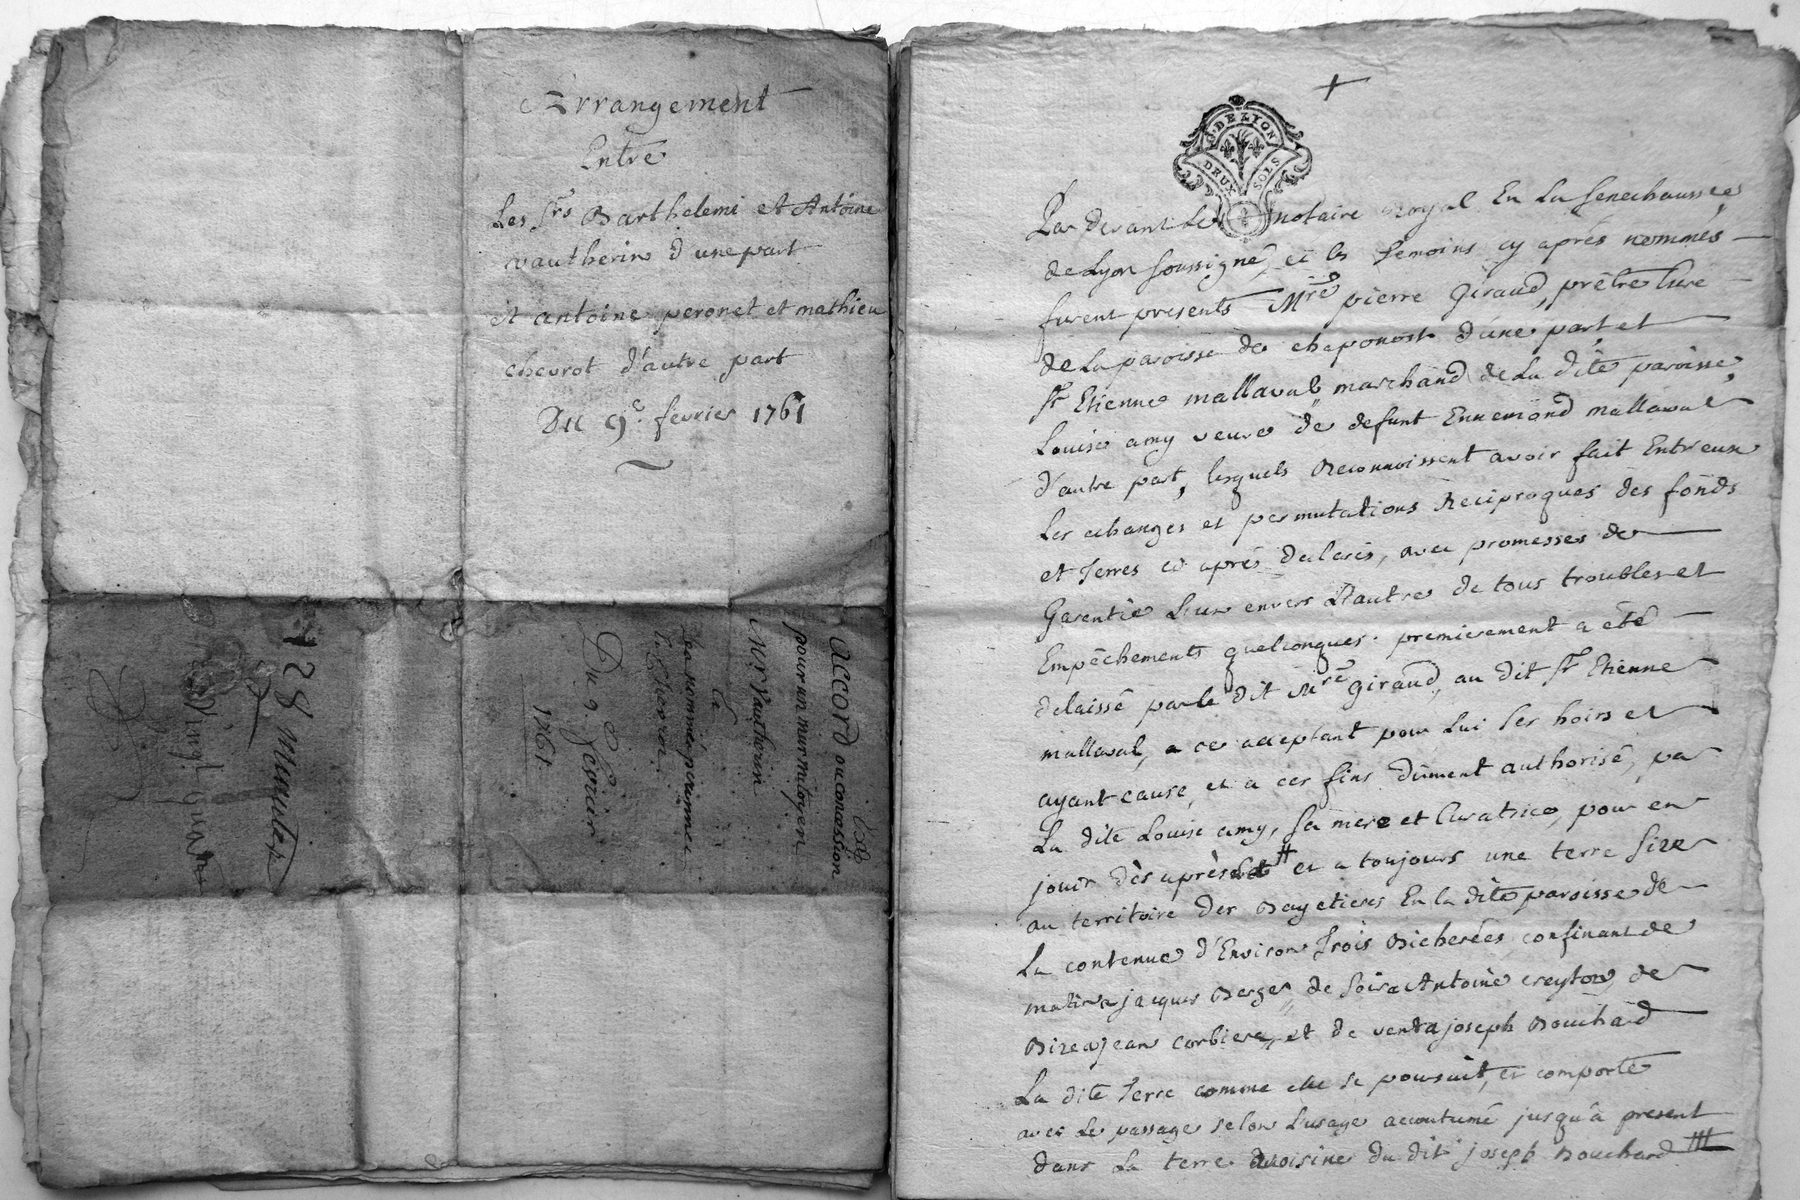 Arrangement
Entre
Les Srs Barthelemi et Antoine
vautherin d'une part
et antoine peronet et mathieu
chevrot d'autre part
Du 9e. fevrier 1761
accord ou concession
pour un mur mitoyen
Mr Vautherin
à
Du 9 Fevrier
1761
128 Minutes
Vingt quatre
G. DE LYON
DEUX SOLS
Par devant Le notaire Royal En La Senechaussée
de Lyon soussigné, et les temoins cy après nommés
furent presents Mre pierre Giraud, prêtre Curé
de La paroisse de chaponost d'une part, et
Sr Etienne mallaval marchand de La dite paroisse,
Louise amy veuve de defunt Ennemond mallaval
d'autre part, lesquels Reconnoissent avoir fait Entr'eux
Les echanges et permutations Reciproques des fonds
et Terres cy après declarés, avec promesses de
Garentie L'un envers L'autre de tous troubles et
Empêchements quelconques. premierement a été
delaissé par le dit Mre Giraud, au dit Sr Etienne
mallaval, a ce acceptant pour Lui ses hoirs et
ayant cause, et a ces fins dûment authorisé, par
La dite Louise amy, sa mere et Curatrice, pour en
jouir dès après et a toujours une terre size
au territoire des Bayetieres En la dite paroisse de
La contenue d'Environ Trois Bicherées confinant de
matin a jacques Berger, de soir a Antoine creyton, de
Bize a jean Corbiere, et de vent a joseph Bouchard
La dite Terre comme elle se poursuit, et comporte
avec Le passage selon L'usage accoutumé jusqu'à present
dans La terre voisine du dit joseph Bouchard